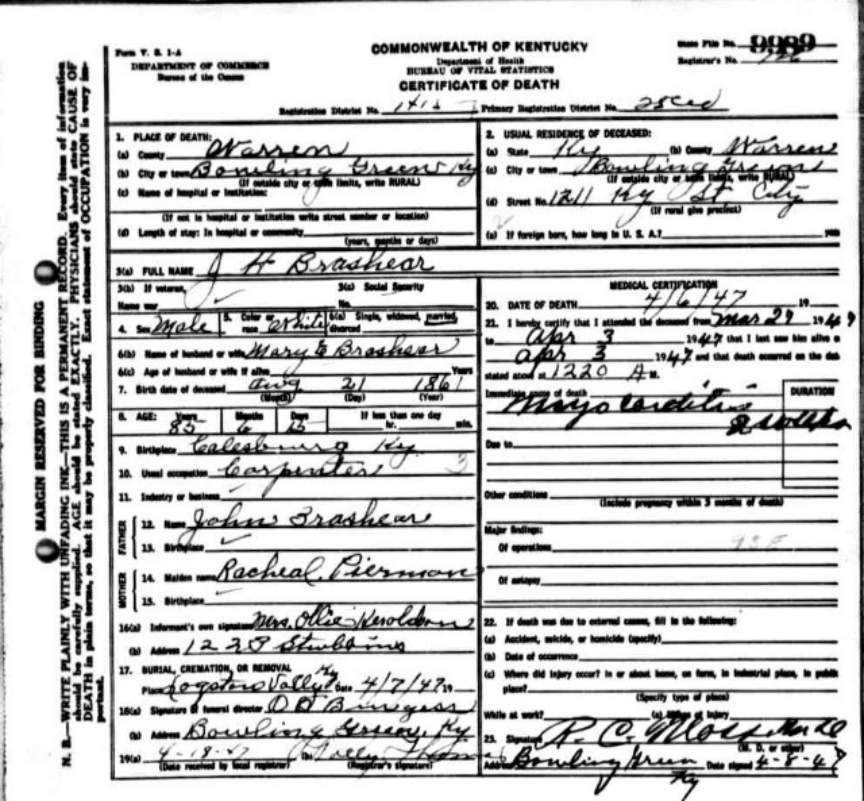 MARGIN RESERVED FOR BINDING
N. B.—WRITE PLAINLY WITH UNFADING INK—THIS IS A PERMANENT RECORD. Every item of information
should be carefully supplied. AGE should be stated EXACTLY. PHYSICIANS should state CAUSE OF
DEATH in plain terms, so that it may be properly classified. Exact statement of OCCUPATION is very im-
portant.
Form V. S. 1-A
DEPARTMENT OF COMMERCE
Bureau of the Census
COMMONWEALTH OF KENTUCKY
Department of Health
BUREAU OF VITAL STATISTICS
CERTIFICATE OF DEATH
State File No. 9989
Registrar's No.
Registration District No. Primary Registration District No.
1. PLACE OF DEATH:
(a) County Warren
(b) City or town Bowling Green Ky
(If outside city or town limits, write RURAL)
(c) Name of hospital or institution:
(If not in hospital or institution write street number or location)
(d) Length of stay: In hospital or community
(years, months or days)
2. USUAL RESIDENCE OF DECEASED:
(a) State Ky (b) County Warren
(c) City or town Bowling Green
(If outside city or town limits, write RURAL)
(d) Street No. 1211 Ky St. City
(If rural give precinct)
(e) If foreign born, how long in U. S. A.?
3(a) FULL NAME J H Brashear
3(b) If veteran,
Name war
3(c) Social Security
No.
4. Sex Male 5. Color or race White 6(a) Single, widowed, married, divorced
6(b) Name of husband or wife Mary E Brashear
6(c) Age of husband or wife if alive Years
7. Birth date of deceased Aug 21 1861
(Month) (Day) (Year)
8. AGE: Years Months Days If less than one day
85 6 15 hr. min.
9. Birthplace Calesburg Ky
10. Usual occupation Carpenter 3
11. Industry or business
FATHER
12. Name John Brashear
13. Birthplace
MOTHER
14. Maiden name Racheal Pierman
15. Birthplace
16(a) Informant's own signature Mrs. Ollie
(b) Address
17. BURIAL, CREMATION, OR REMOVAL
Place Date 4/7/47 19
18(a) Signature of funeral director Burgess
(b) Address Bowling Green, Ky
19(a) 4-18-47 (b)
(Date received by local registrar) (Registrar's signature)
MEDICAL CERTIFICATION
20. DATE OF DEATH 4/6/47 19
21. I hereby certify that I attended the deceased from Mar 29 1947
to Apr 3 1947 that I last saw him alive on
Apr 3 1947 and that death occurred on the date
stated above at 1220 A M.
Immediate cause of death
DURATION
Myocarditis
Due to
Other conditions
(Include pregnancy within 3 months of death)
Major findings:
Of operations
Of autopsy
22. If death was due to external causes, fill in the following:
(a) Accident, suicide, or homicide (specify)
(b) Date of occurrence
(c) Where did injury occur? In or about home, on farm, in industrial place, in public
place?
(Specify type of place)
While at work? (e) Means of injury
23. Signature R. C. Moss
(M. D. or other)
Address Bowling Green Ky Date signed 4-8-47